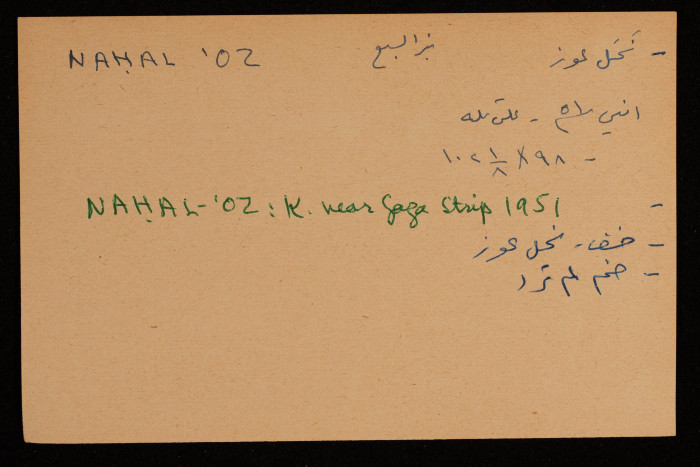 NAḤAL 'OZ بئر السبع نَحَل عوز -
انشئ ٥١ - على تله
- ٩٨ X ١/٨ ١٠٢
NAḤAL-'OZ: K. near Gaza Strip 1951 -
- خنف - نحل عوز
- خم لم ترد